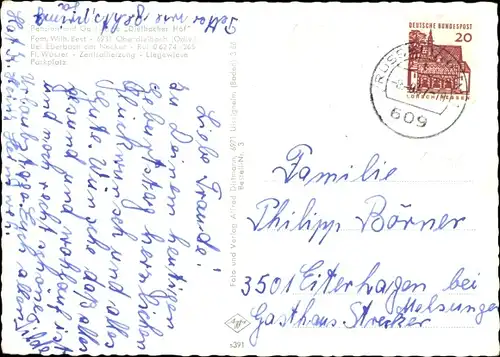 Pension und
Fam. Wilh. Best - 6931 Oberdielbach (Odw.)
Bei Eberbach am Neckar - Ruf 06274-265
Fl. Wasser - Zentralheizung - Liegewiese
Parkplatz
Liebe Traude!
zu Deinem heutigen
Geburtstag herzlichen
Glückwunsch und alles
Gute. Wünsche daß alles
gesund und wohlauf ist
und noch recht schöne
Urlaubstage. Euch allen
Foto und Verlag Alfred Dittmann, 6971 Uissigheim (Baden)
Bestell-Nr. 3
Agfa
s391
DEUTSCHE BUNDESPOST
20
LORSCH/HESSEN
609
Familie
Philipp Börner
3501 Eiterhagen bei
Melsungen
Gasthaus Strecker